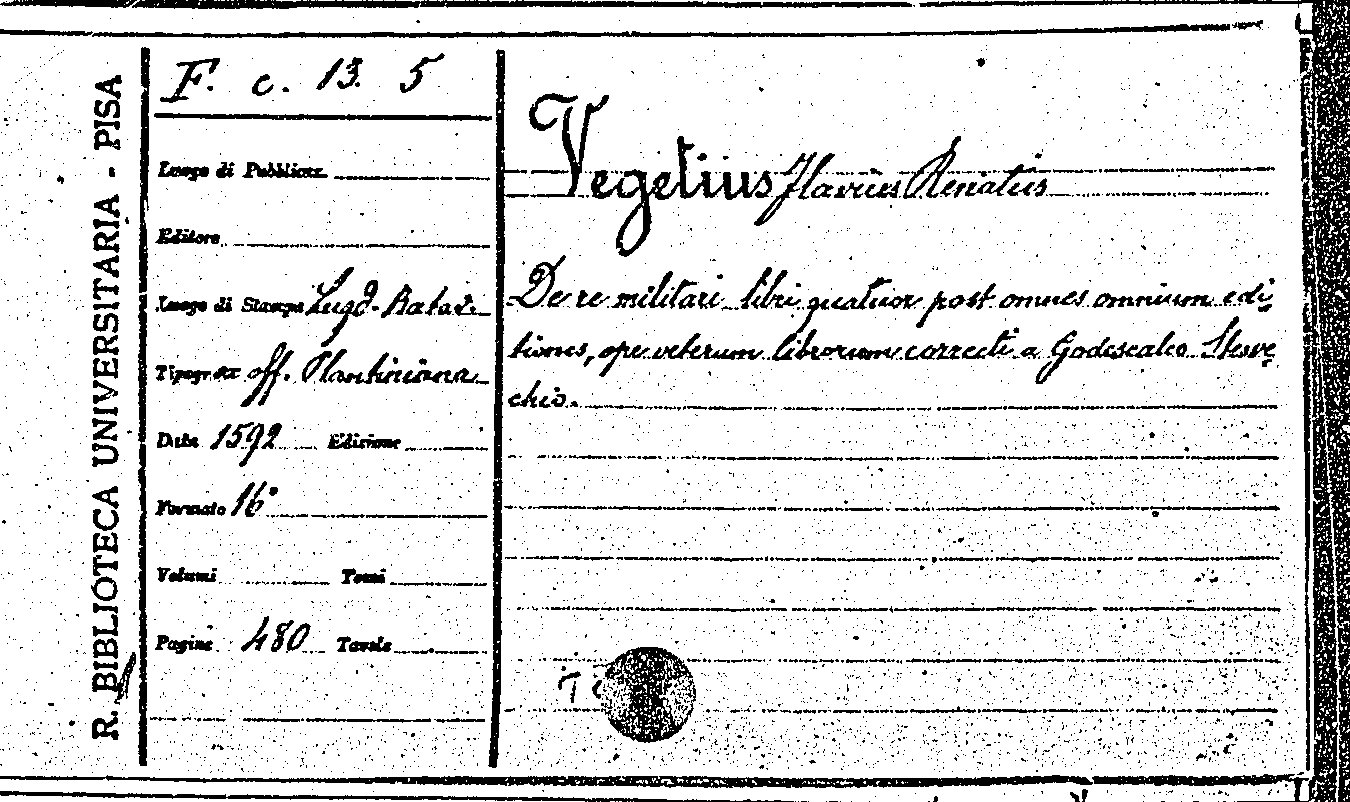 R. BIBLIOTECA UNIVERSITARIA - PISA
F. c. 13. 5
Luogo di Pubblicaz.
Editore
Luogo di Stampa Lugd. Batav.
Tipografia off. Plantiniana
Data 1592 Edizione
Formato 16°
Volumi Tomi
Pagine 480 Tavole
Vegetius Flavius Renatus
De re militari libri quatuor post omnes omnium edi
tiones, ope veterum librorum correcti a Godescalco Stewe
chio.